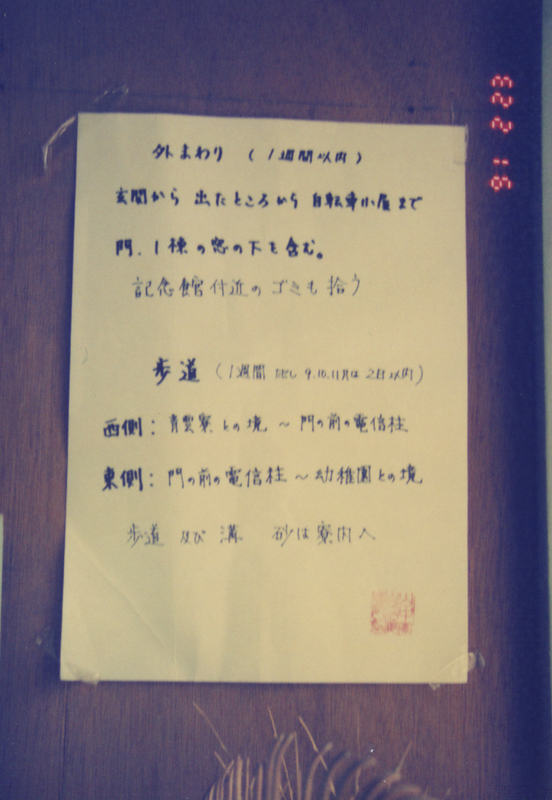 外まわり (1週間以内)
玄関から 出たところから 自転車小屋まで
門、1棟の窓の下を含む。
記念館付近のゴミも拾う
歩道 (1週間 但し 9.10.11月は2日以内)
西側: 青雲寮との境 〜 門の前の電信柱
東側: 門の前の電信柱 〜 幼稚園との境
歩道 及び 溝 砂は寮内へ